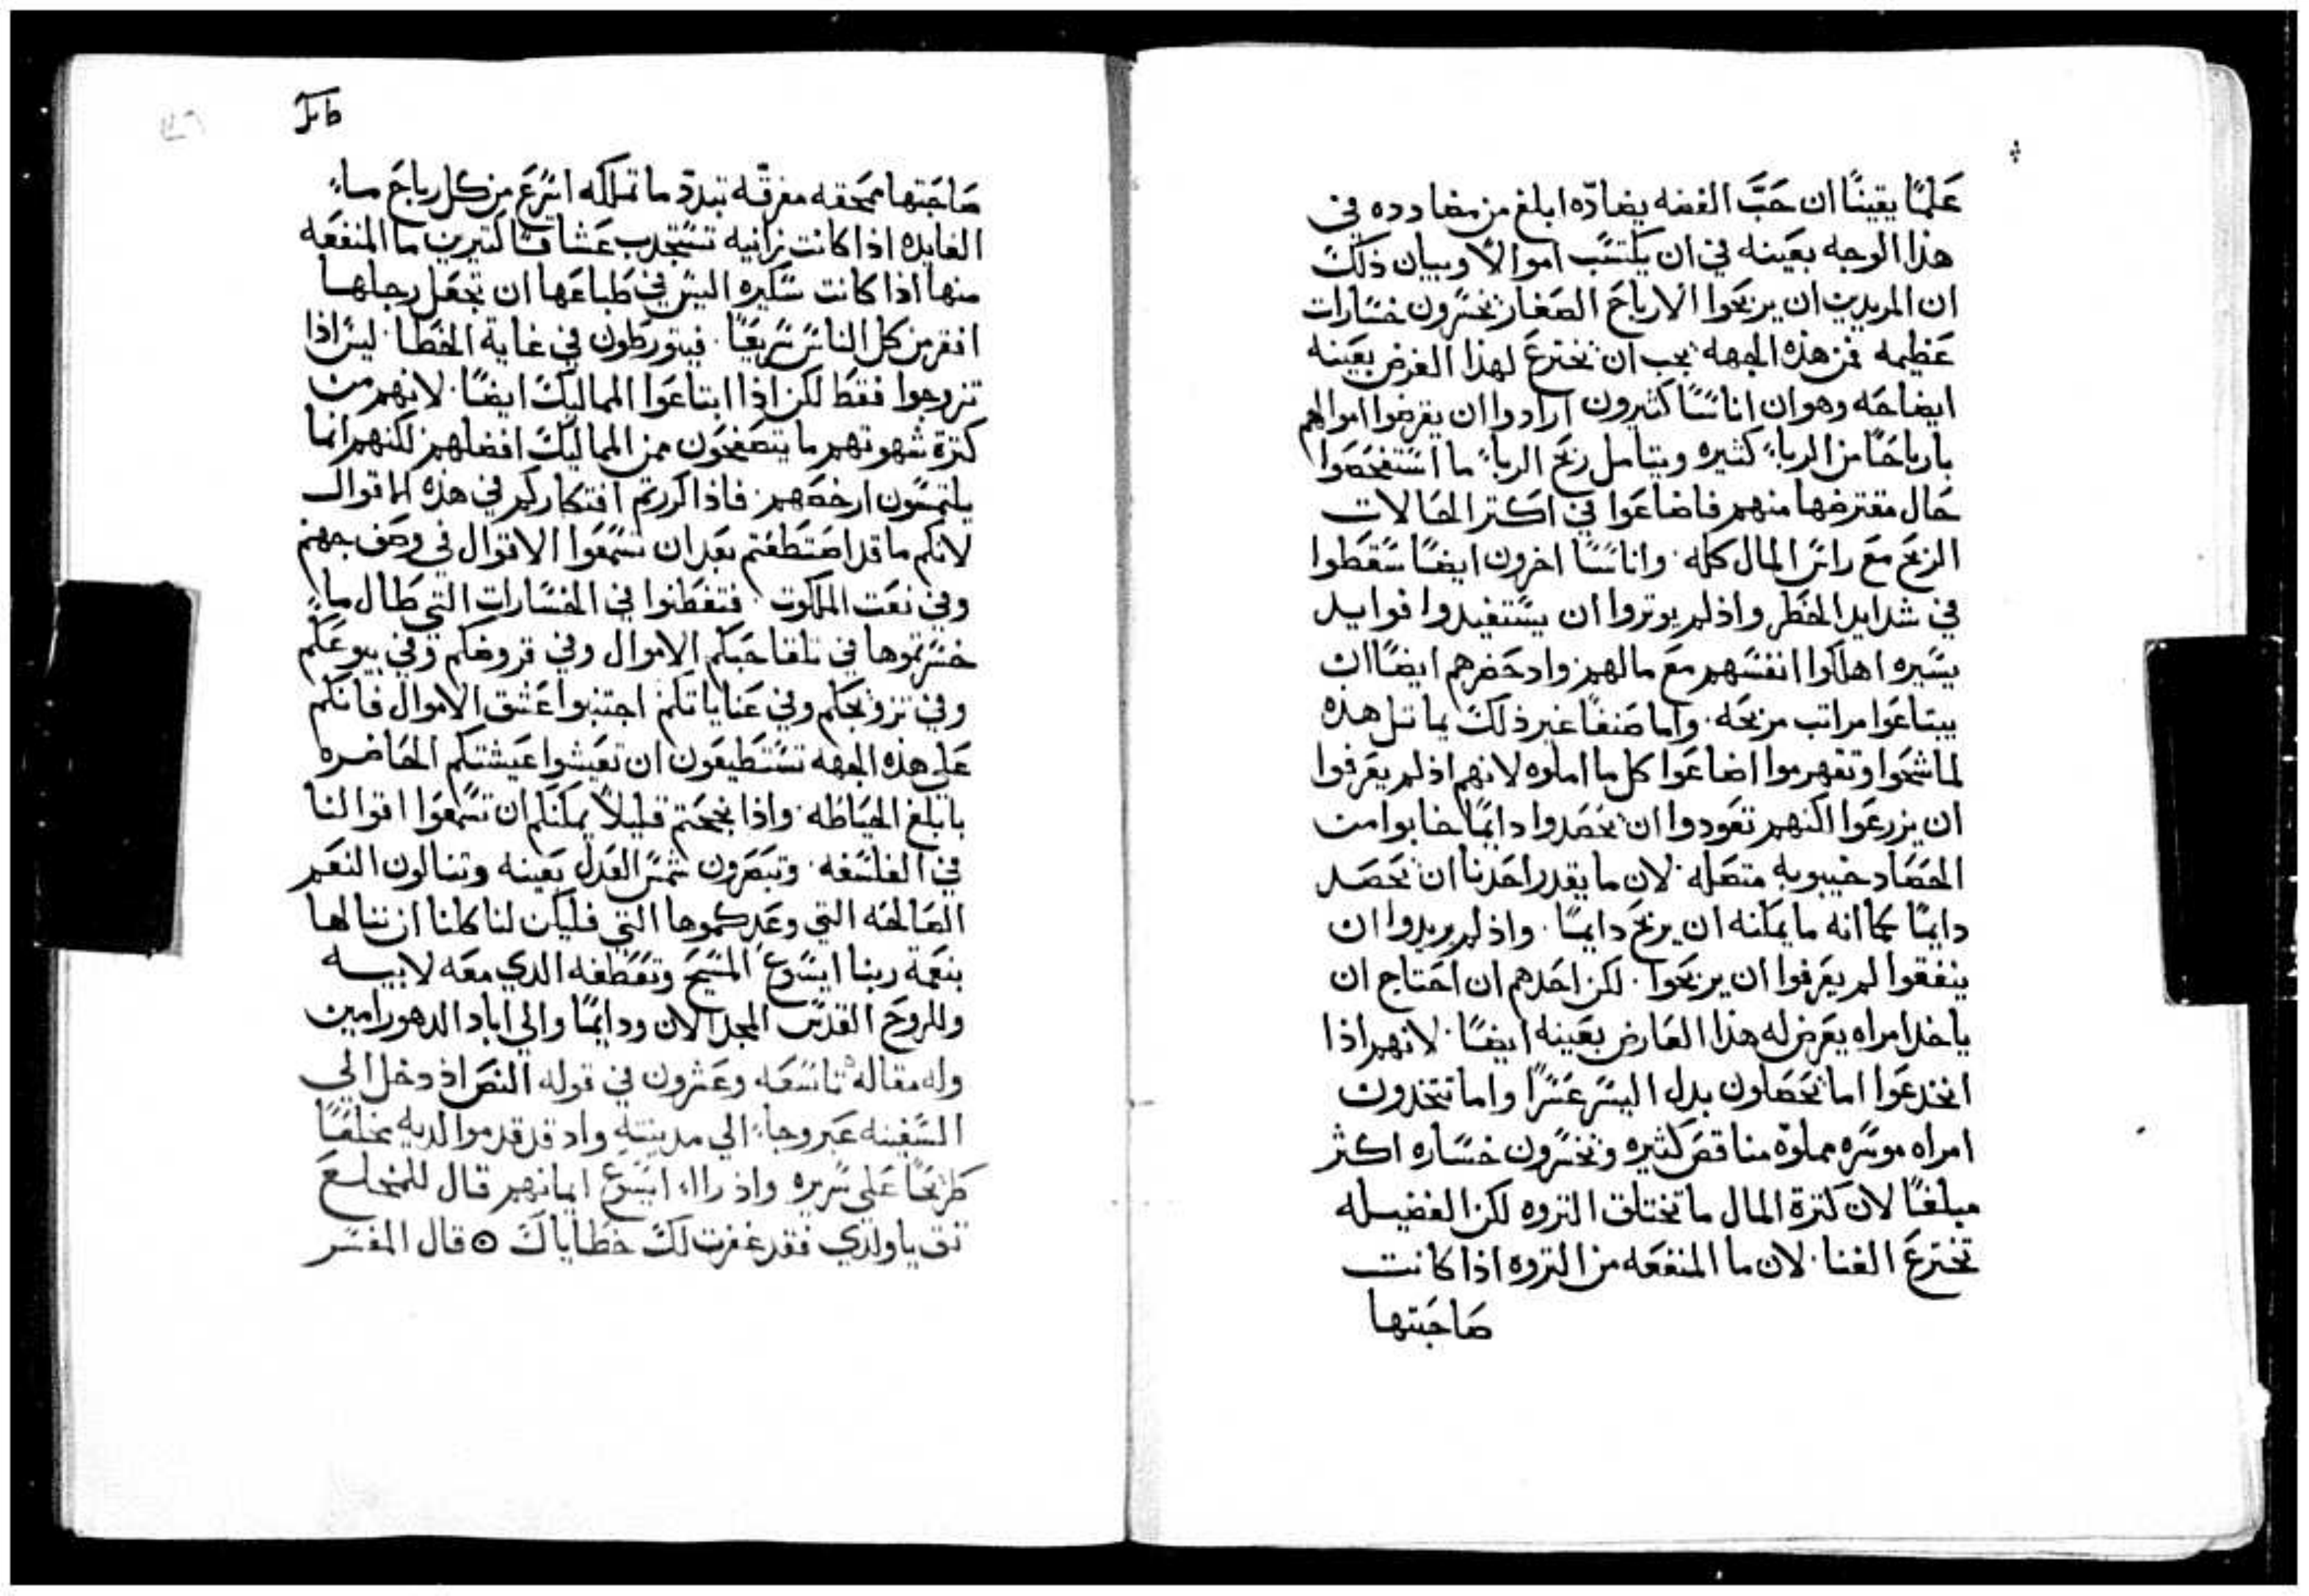 علمًا يقينًا ان حبَّ الفضه يضادّه ابلغ من مضادده في
هذا الوجه بعينه في ان يكتسب اموالًا وبيان ذلك
ان المريدين ان يربحوا الارباح الصغار يخسرون خسارات
عظيمه فمن هذه الجهه يجب ان يخترع لهذا الغرض بعينه
ايضاحه وهو ان اناسًا كثيرون ارادوا ان يقرضوا اموالهم
بارباحًا من الرباء كثيره وبتامل ربح الرباء ما استفحصوا
حال مقترضها منهم فاضاعوا في اكتر الحالات
الربح مع راس المال كله. واناسًا اخرون ايضًا سقطوا
في شدايد الخطر واذ لم يوتروا ان يستفيدوا فوايد
يسيره اهلكوا انفسهم مع مالهم واد حضرهم ايضًا ان
يبتاعوا مراتب مربحه. واما صنفًا غير ذلك يماتل هذه
لما شحوا وتقهرموا اضاعوا كل ما املوه لانهم اذ لم يعرفوا
ان يزرعوا لكنهم تعودوا ان يحصدوا دايمًا خابوا من
الحصاد خيبوبه متصله. لان ما يقدر احدنا ان يحصد
دايمًا كما انه ما يمكنه ان يربح دايمًا. واذ لم يريدوا ان
ينفقوا لم يعرفوا ان يربحوا. لكن احدهم ان احتاج ان
ياخذ امراه يعرض له هذا العارض بعينه ايضًا. لانهم اذا
انخدعوا اما يحصلون بدل اليسر عسرًا واما يتخدون
امراه موسره مملوّه مناقص كثيره ويخسرون خساره اكثر
مبلغًا لان كترة المال ما تختلق التروه لكن الفضيله
تخترع الغنا. لان ما المنفعه من التروه اذا كانت
صاحبتها
صاحبتها ممحقه مفرقّه تبددّ ما تملكه اسرع من كل رياح ماء
الفايده اذا كانت زانيه تستجدب عشاقًا كتيرين ما المنفعه
منها اذا كانت سكيره اليس في طباعها ان تجعل رجلها
افقر من كل الناس سريعًا. فيتورطون في غاية الخطا. ليس اذا
تزوجوا فقط لكن اذا ابتاعوا المماليك ايضًا. لانهم من
كترة شهوتهم ما يتصفحون من المماليك افضلهم لكنهم انما
يلتمسون ارخصهم. فاذا كررتم افتكاركم في هذه الاقوال
لانكم ما قد اصتطعتم بعد ان تسمعوا الاقوال في وصف جهنم
وفي نعت الملكوت. فتفطنوا في الخسارات التي طال ما
خسرتموها في تلقا حبكم الاموال وفي قروضكم وفي بيوعكم
وفي تزويجكم وفي عناياتكم اجتنبوا عشق الاموال فانكم
على هذه الجهه تستطيعون ان تعيشوا عيشتكم الحاضره
بابلغ الحياطه. واذا نجحتم قليلًا يمكنكم ان تسمعوا اقوالنا
في الفلسفه. وتبصرون شمس العدل بعينه وتنالون النعم
الصالحه التي وعدكموها التي فليكن لنا كلنا ان ننالها
بنعمة ربنا ايسوع المسيح وتعطفه الدي معه لابيه
وللروح القدس المجد الان ودايمًا والي اباد الدهور امين
وله مقاله تاسعه وعشرون في قوله النص اذ دخل الي
السفينه عبر وجاء الي مدينته واد قد قدموا لديه مخلعًا
طريحًا علي سريره واذ راا ايسوع ايمانهم قال للمخلع
تق يا ولدي فقد غفرت لك خطاياك ⊙ قال المفسر